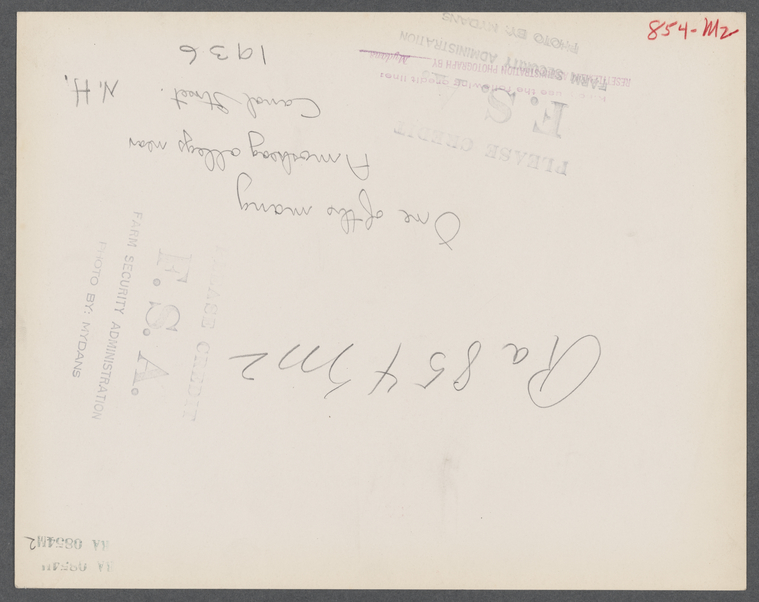 854-M2
PLEASE CREDIT
F.S.
FARM SECURITY ADMINISTRATION
PHOTO BY: MYDANS
RESETTLEMENT ADMINISTRATION PHOTOGRAPH BY Mydans
One of the many
Amoskeag alleys near
Canal Street.
N.H.
1936
PLEASE CREDIT
F.S.A.
FARM SECURITY ADMINISTRATION
PHOTO BY: MYDANS
Ra 854 M2
RA 0854M2
RA 0854M